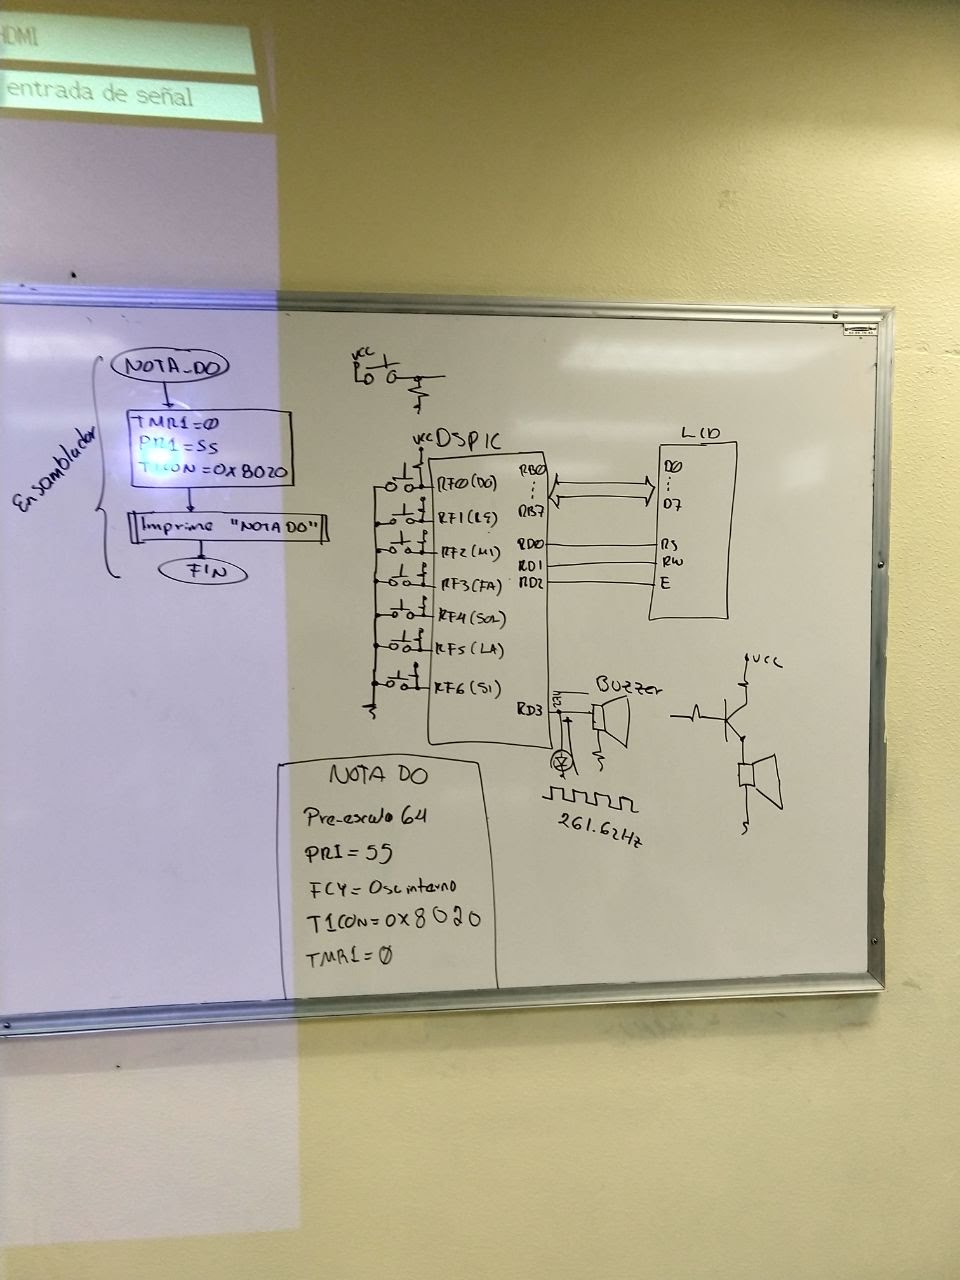 HDMI
entrada de señal
Ensamblador
NOTA_DO
TMR1=0
PR1=55
T1CON=0x8020
Imprime "NOTA DO"
FIN
VCC
VCC DSPIC
RF0(DO)
RF1(RE)
RF2(MI)
RF3(FA)
RF4(SOL)
RF5(LA)
RF6(SI)
RB0
RB7
RD0
RD1
RD2
RD3
LCD
D0
D7
RS
RW
E
Buzzer
261.62Hz
VCC
NOTA DO
Pre-escala 64
PR1=55
FCY=Osc interno
T1CON=0x8020
TMR1=0